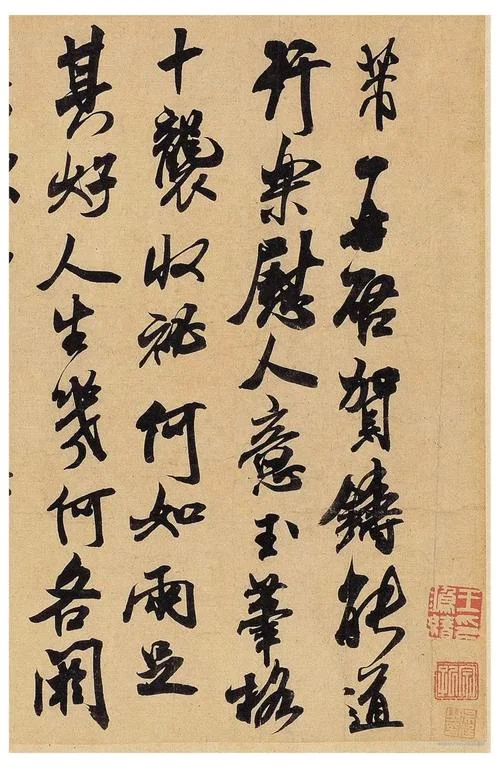 芾再啓賀鑄能道
行樂慰人意玉筆格
十襲收祕何如兩足
其好人生幾何各闕